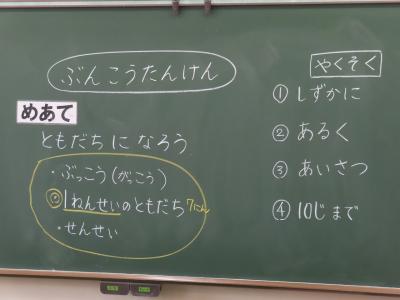 ぶんこうたんけん
めあて
ともだちになろう
・ぶっこう(がっこう)
◎1ねんせいのともだち7にん
・せんせい
やくそく
①しずかに
②あるく
③あいさつ
④10じまで